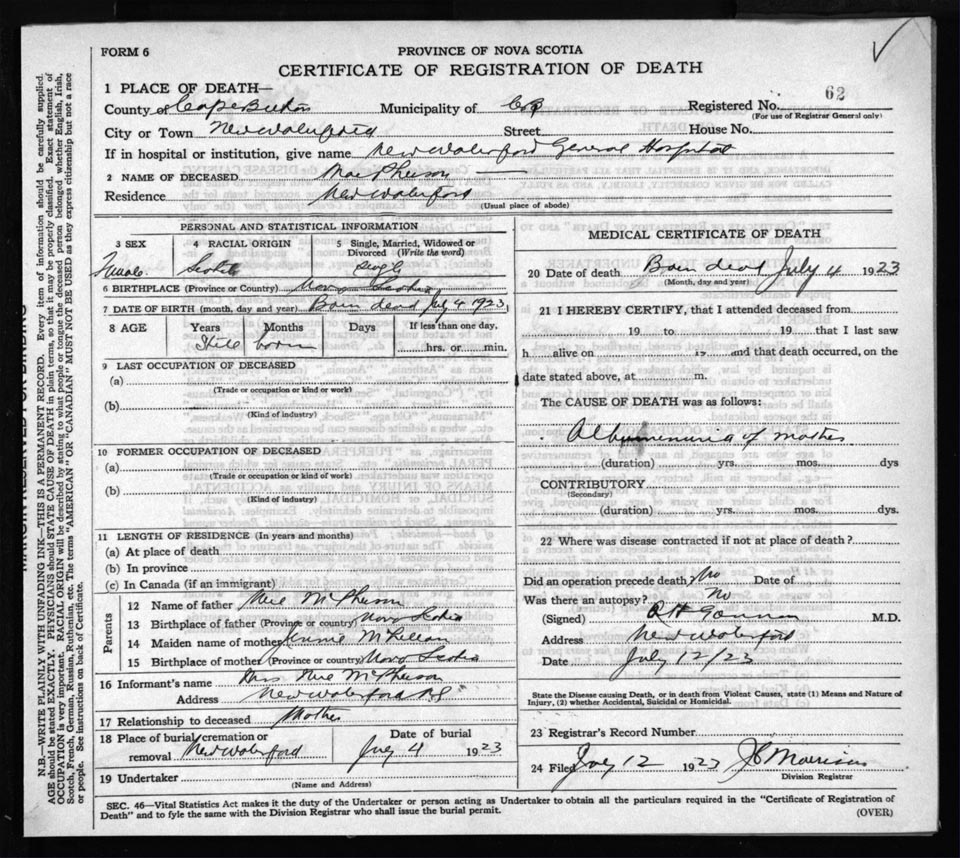 FORM 6
PROVINCE OF NOVA SCOTIA
CERTIFICATE OF REGISTRATION OF DEATH
62
1 PLACE OF DEATH—
County of Cape Breton Municipality of CB Registered No.
(For use of Registrar General only)
City or Town New Waterford Street House No.
If in hospital or institution, give name New Waterford General Hospital
2 NAME OF DECEASED MacPherson
Residence New Waterford
(Usual place of abode)
PERSONAL AND STATISTICAL INFORMATION
3 SEX 4 RACIAL ORIGIN 5 Single, Married, Widowed or
Divorced (Write the word)
Female Scotch Single
6 BIRTHPLACE (Province or Country) Nova Scotia
7 DATE OF BIRTH (month, day and year) Born dead July 4 1923
8 AGE Years Months Days If less than one day,
Still born hrs. or min.
9 LAST OCCUPATION OF DECEASED
(a)
(Trade or occupation or kind or work)
(b)
(Kind of industry)
10 FORMER OCCUPATION OF DECEASED
(a)
(Trade or occupation or kind of work)
(b)
(Kind of industry)
11 LENGTH OF RESIDENCE (In years and months)
(a) At place of death
(b) In province
(c) In Canada (if an immigrant)
Parents
12 Name of father McPherson
13 Birthplace of father (Province or country) Nova Scotia
14 Maiden name of mother Annie
15 Birthplace of mother (Province or country) Nova Scotia
16 Informant's name Mrs McPherson
Address New Waterford
17 Relationship to deceased Mother
18 Place of burial, cremation or Date of burial
removal New Waterford July 4 1923
19 Undertaker
(Name and Address)
MEDICAL CERTIFICATE OF DEATH
20 Date of death Born dead July 4 1923
(Month, day and year)
21 I HEREBY CERTIFY, that I attended deceased from
19 to 19 that I last saw
h alive on 19 and that death occurred, on the
date stated above, at m.
The CAUSE OF DEATH was as follows:
Albumenuria of mother
(duration) yrs. mos. dys
CONTRIBUTORY
(Secondary)
(duration) yrs. mos. dys.
22 Where was disease contracted if not at place of death?
Did an operation precede death? No Date of
Was there an autopsy? No
(Signed) M.D.
Address New Waterford
Date July 12/23
State the Disease causing Death, or in death from Violent Causes, state (1) Means and Nature of
Injury, (2) whether Accidental, Suicidal or Homicidal.
23 Registrar's Record Number
24 Filed July 12 1923 J C Morrison
Division Registrar
SEC. 46—Vital Statistics Act makes it the duty of the Undertaker or person acting as Undertaker to obtain all the particulars required in the "Certificate of Registration of
Death" and to fyle the same with the Division Registrar who shall issue the burial permit.
(OVER)
N.B.—WRITE PLAINLY WITH UNFADING INK—THIS IS A PERMANENT RECORD. Every item of information should be carefully supplied.
AGE should be stated EXACTLY. PHYSICIANS should STATE CAUSE OF DEATH in plain terms, so that it may be properly classified. Exact statement of
OCCUPATION is very important. RACIAL ORIGIN will be described by stating to what people or tongue the deceased person belonged whether English, Irish,
Scotch, French, German, Russian, Ruthenian, etc. The terms "AMERICAN" OR "CANADIAN" MUST NOT BE USED as they express citizenship but not a race
or people. See instructions on back of Certificate.